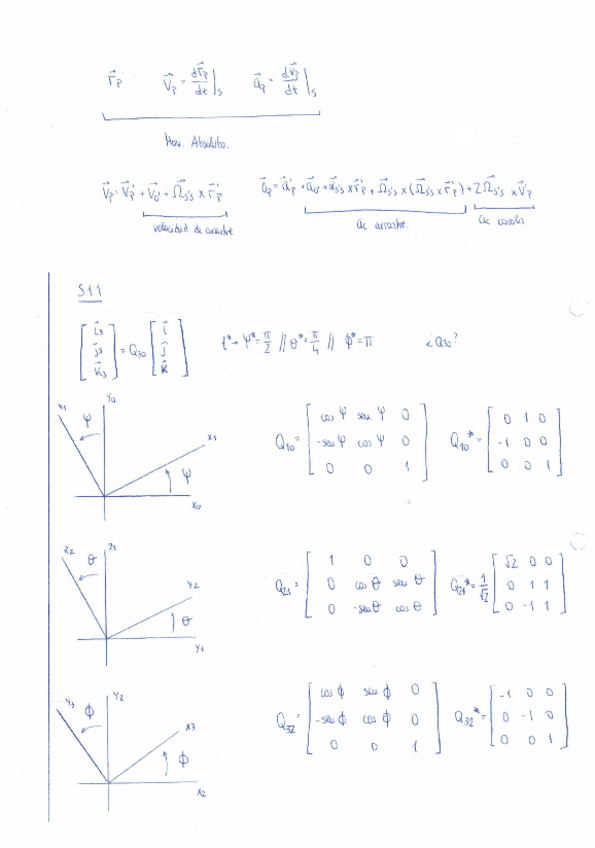 r⃗p : V⃗p = dr⃗p/dt |s a⃗p = dv⃗p/dt |s
Mov. Absoluto.
V⃗p = V⃗p' + V⃗o' + Ω⃗s's × r⃗'p a⃗p = a⃗'p + a⃗o' + α⃗s's × r⃗'p + Ω⃗s's × (Ω⃗s's × r⃗'p) + 2Ω⃗s's × V⃗'p
velocidad de arrastre ac arrastre. ac coriolis
S11
[ i⃗3 j⃗3 k⃗3 ] = Q30 [ i⃗ j⃗ k⃗ ] t* → ψ* = π/2 // θ* = π/4 // ϕ* = π ¿Q30?
Y1 Y0 ψ X1 ψ X0
Q10 = [ cos ψ sen ψ 0
-sen ψ cos ψ 0
0 0 1 ]
Q10* = [ 0 1 0
-1 0 0
0 0 1 ]
Z2 Z1 θ Y2 θ Y1
Q21 = [ 1 0 0
0 cos θ sen θ
0 -sen θ cos θ ]
Q21* = 1/√2 [ √2 0 0
0 1 1
0 -1 1 ]
Y3 Y2 ϕ X3 ϕ X2
Q32 = [ cos ϕ sen ϕ 0
-sen ϕ cos ϕ 0
0 0 1 ]
Q32* = [ -1 0 0
0 -1 0
0 0 1 ]